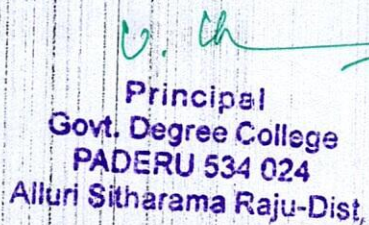 Principal
Govt. Degree College
PADERU 534 024
Alluri Sitharama Raju-Dist,